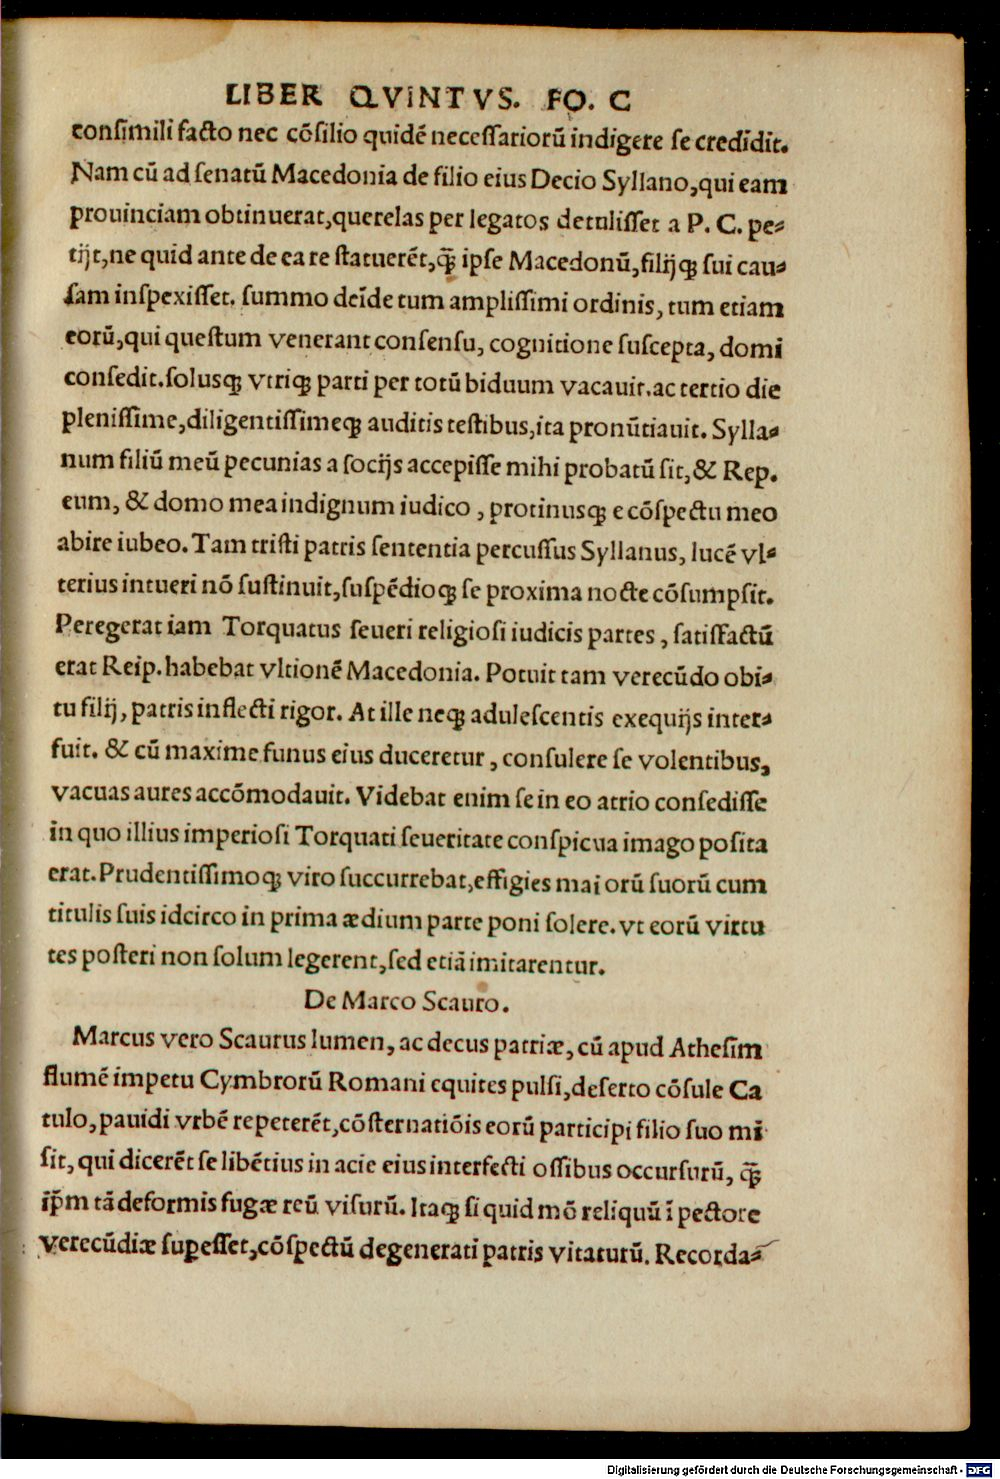 LIBER QVINTVS. FO. C
conſimili facto nec cõſilio quidẽ neceſſariorũ indigere ſe credidit.
Nam cũ ad ſenatũ Macedonia de filio eius Decio Syllano,qui eam
prouinciam obtinuerat,querelas per legatos detuliſſet a P. C. pe⸗
tijt,ne quid ante de ea re ſtatuerẽt,ꝙ̃ ipſe Macedonũ,filijqꝫ ſui cau⸗
ſam inſpexiſſet. ſummo deĩde tum ampliſſimi ordinis, tum etiam
eorũ,qui queſtum venerant conſenſu, cognitione ſuſcepta, domi
conſedit.ſoluſqꝫ vtriqꝫ parti per totũ biduum vacauit.ac tertio die
pleniſſime,diligentiſſimeqꝫ auditis teſtibus,ita pronũtiauit. Sylla⸗
num filiũ meũ pecunias a ſocijs accepiſſe mihi probatũ ſit,& Rep.
eum, & domo mea indignum iudico , protinuſqꝫ e cõſpectu meo
abire iubeo. Tam triſti patris ſententia percuſſus Syllanus, lucẽ vl⸗
terius intueri nõ ſuſtinuit,ſuſpẽdioqꝫ ſe proxima nocte cõſumpſit.
Peregerat iam Torquatus ſeueri religioſi iudicis partes , ſatiſfactũ
erat Reip. habebat vltionẽ Macedonia. Potuit tam verecũdo obi⸗
tu filij, patris inflecti rigor. At ille neqꝫ aduleſcentis exequijs inter⸗
fuit. & cũ maxime funus eius duceretur , conſulere ſe volentibus,
vacuas aures accõmodauit. Videbat enim ſe in eo atrio conſediſſe
in quo illius imperioſi Torquati ſeueritate conſpicua imago poſita
erat. Prudentiſſimoqꝫ viro ſuccurrebat,effigies maiorũ ſuorũ cum
titulis ſuis idcirco in prima ædium parte poni ſolere. vt eorũ virtu
tes poſteri non ſolum legerent,ſed etiã imitarentur.
De Marco Scauro.
Marcus vero Scaurus lumen, ac decus patriæ, cũ apud Atheſim
flumẽ impetu Cymbrorũ Romani equites pulſi,deſerto cõſule Ca
tulo, pauidi vrbẽ repeterẽt,cõſternatiõis eorũ participi filio ſuo mi
ſit, qui dicerẽt ſe libẽtius in acie eius interfecti oſſibus occurſurũ, ꝙ̃
ip̃m tã deformis fugæ reũ viſurũ. Itaqꝫ ſi quid mõ reliquũ ĩ pectore
verecũdiæ ſuꝑeſſet,cõſpectũ degenerati patris vitaturũ. Recorda⸗
Digitalisierung gefördert durch die Deutsche Forschungsgemeinschaft - DFG